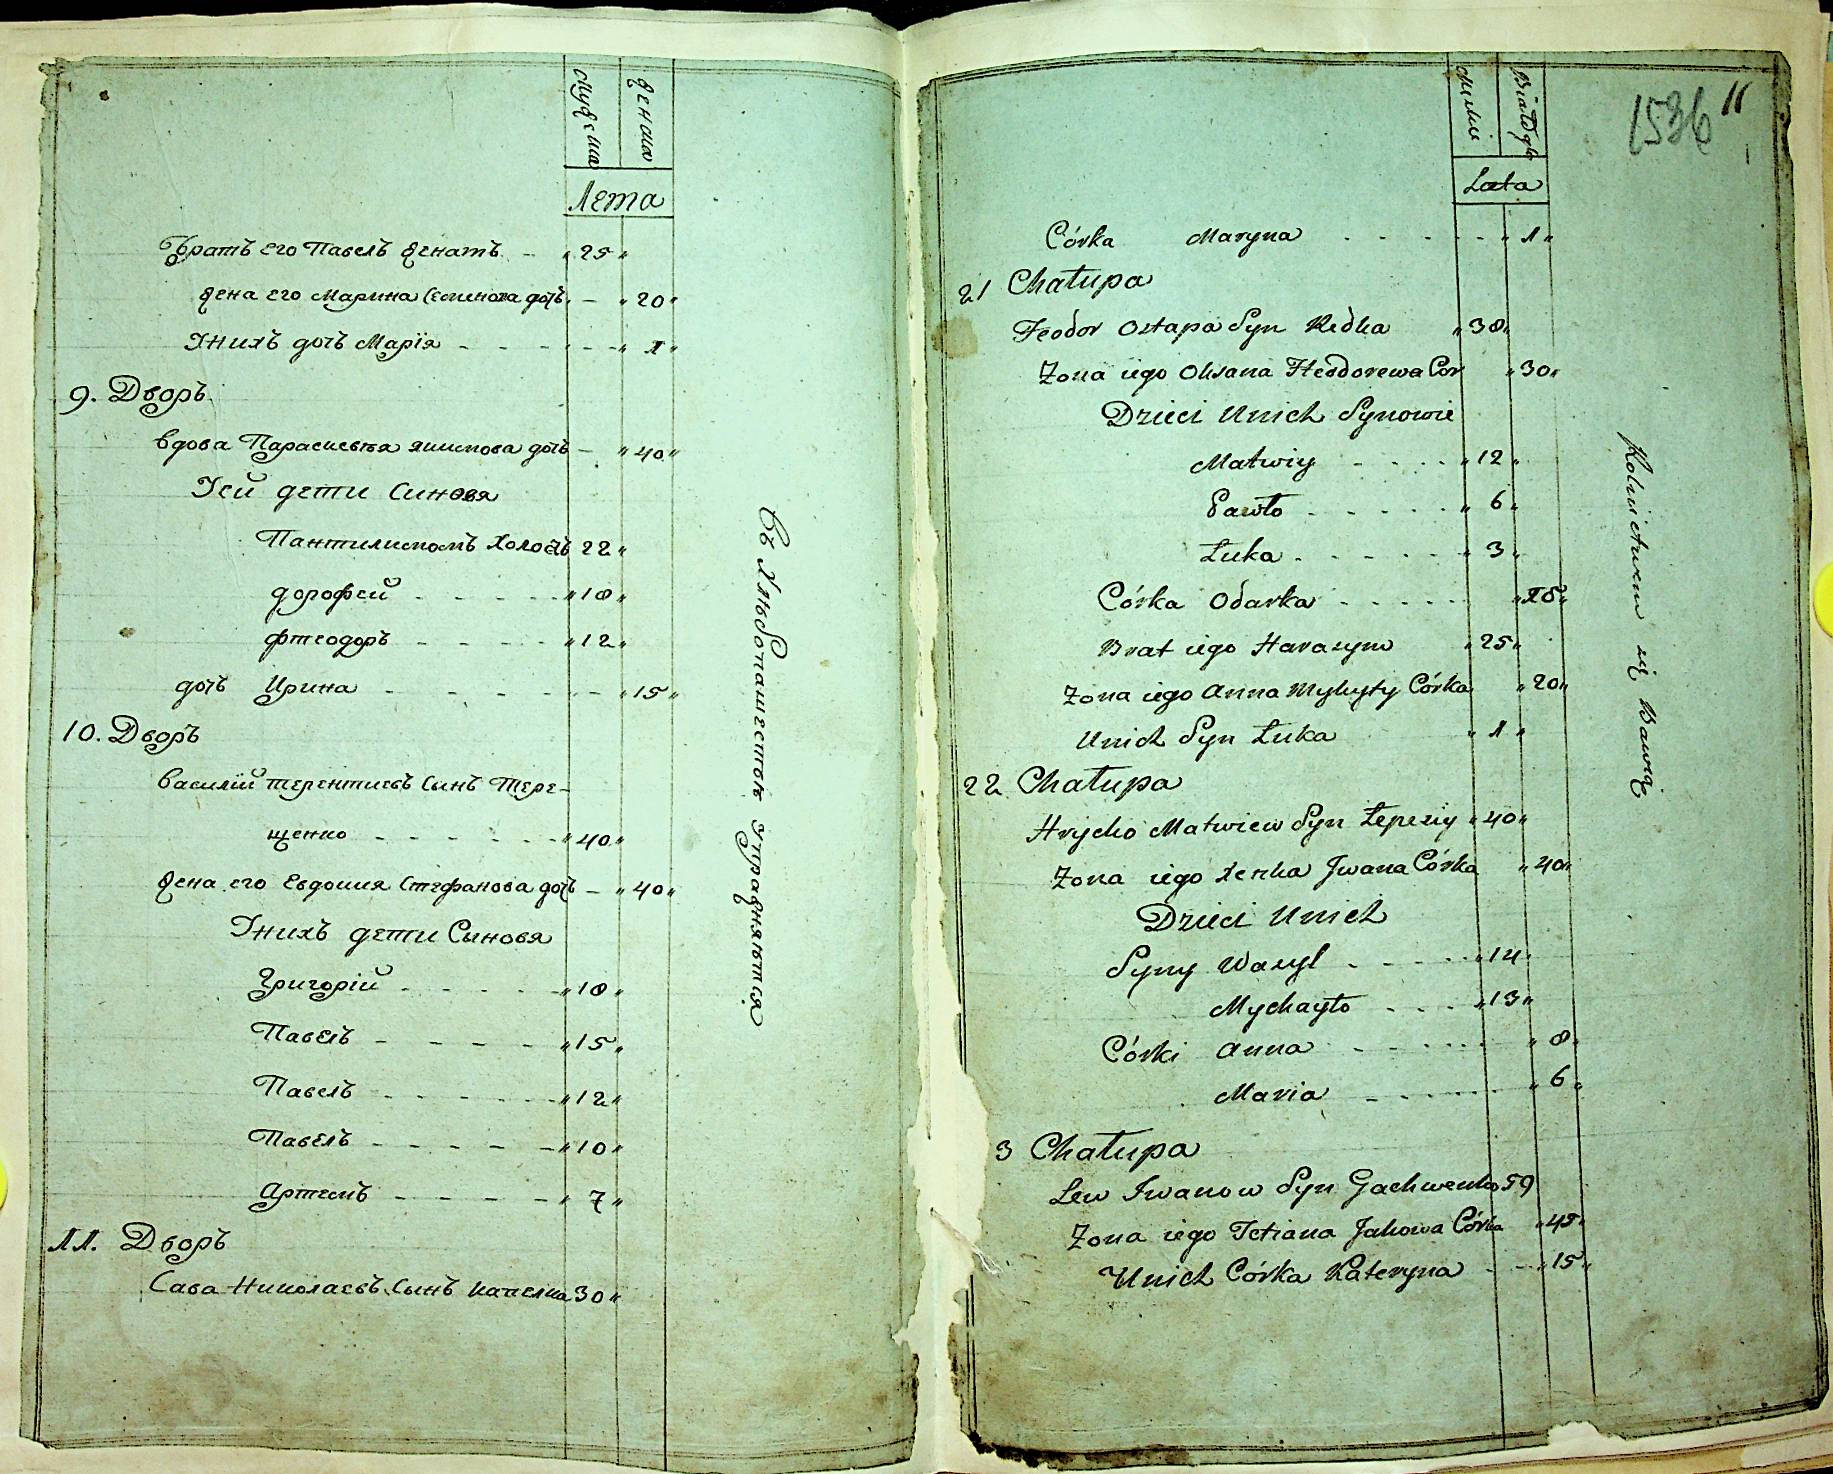 Мужеска
женска
Лета
Братъ его Павелъ женатъ - „ 25 „
жена его Марина Семенова дочь - „ 20 „
Унихъ дочь Марія - - - - - - „ 1 „
9. Дворъ
вдова Парасцевѣя якимова дочь - „ 40 „
Уей дети Синовя
Пантилимомъ холостъ 22 „
дорофей - - - - - „ 18 „
фтеодоръ - - - - - „ 12 „
дочь Ирина - - - - - - „ 15 „
10. Дворъ
василій терентиевъ Сынъ Тере-
щенко - - - - - - „ 40 „
жена его Евдокия Стефанова дочь - „ 40 „
Унихъ дети Сыновя
Григорій - - - - - „ 18 „
Павелъ - - - - - „ 15 „
Павелъ - - - - - „ 12 „
Павелъ - - - - - „ 10 „
Артемъ - - - - - „ 7 „
11. Дворъ
Сава Николаевъ Сынъ Капелка 30 „
Въ Хлѣбопашествѣ Упражняются
1536
11
Męskie
Białogło
Lata
Córka Maryna - - - - - „ 1 „
21 Chałupa
Feodor Ostapa Syn Redka „ 38 „
Zona iego Oksana Fteodorewa Cor „ 30 „
Dzieci Unich Synowie
Matwiy - - - - „ 12 „
Pawło - - - - - „ 6 „
Łuka - - - - - „ 3 „
Córka Odarka - - - - - „ 15 „
Brat iego Harasym „ 25 „
Zona iego Anna Mykyty Córka „ 20 „
Unich Syn Łuka „ 1 „
22 Chałupa
Hrycko Matwiew Syn Łepeiy „ 40 „
Zona iego Xenka Jwana Córka „ 40 „
Dzieci Unich
Syny Wasyl - - - - - „ 14 „
Mychayło - - - „ 13 „
Córki Anna - - - - - - „ 8 „
Maria - - - - - - „ 6 „
3 Chałupa
Lew Iwanow Syn Gachwenko 59
Zona iego Tetiana Jakowa Córka „ 45 „
Unich Córka Kateryna - - „ 15 „
Rolnictwem się Bawią